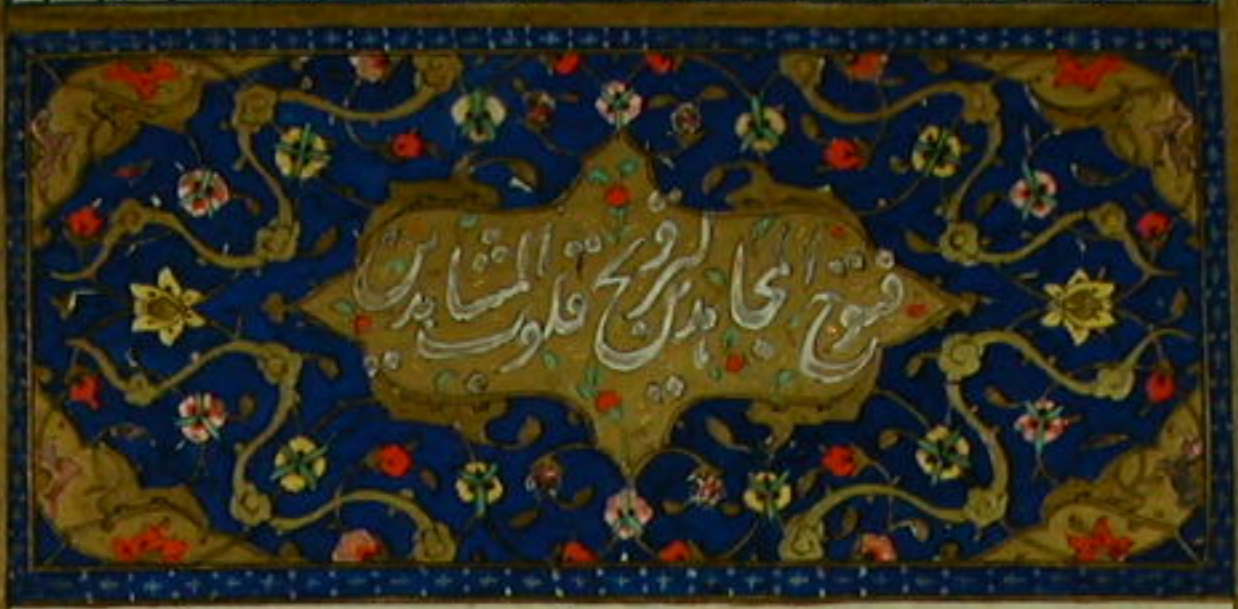 فتوح المجاهدین لترویح قلوب المشاهدین